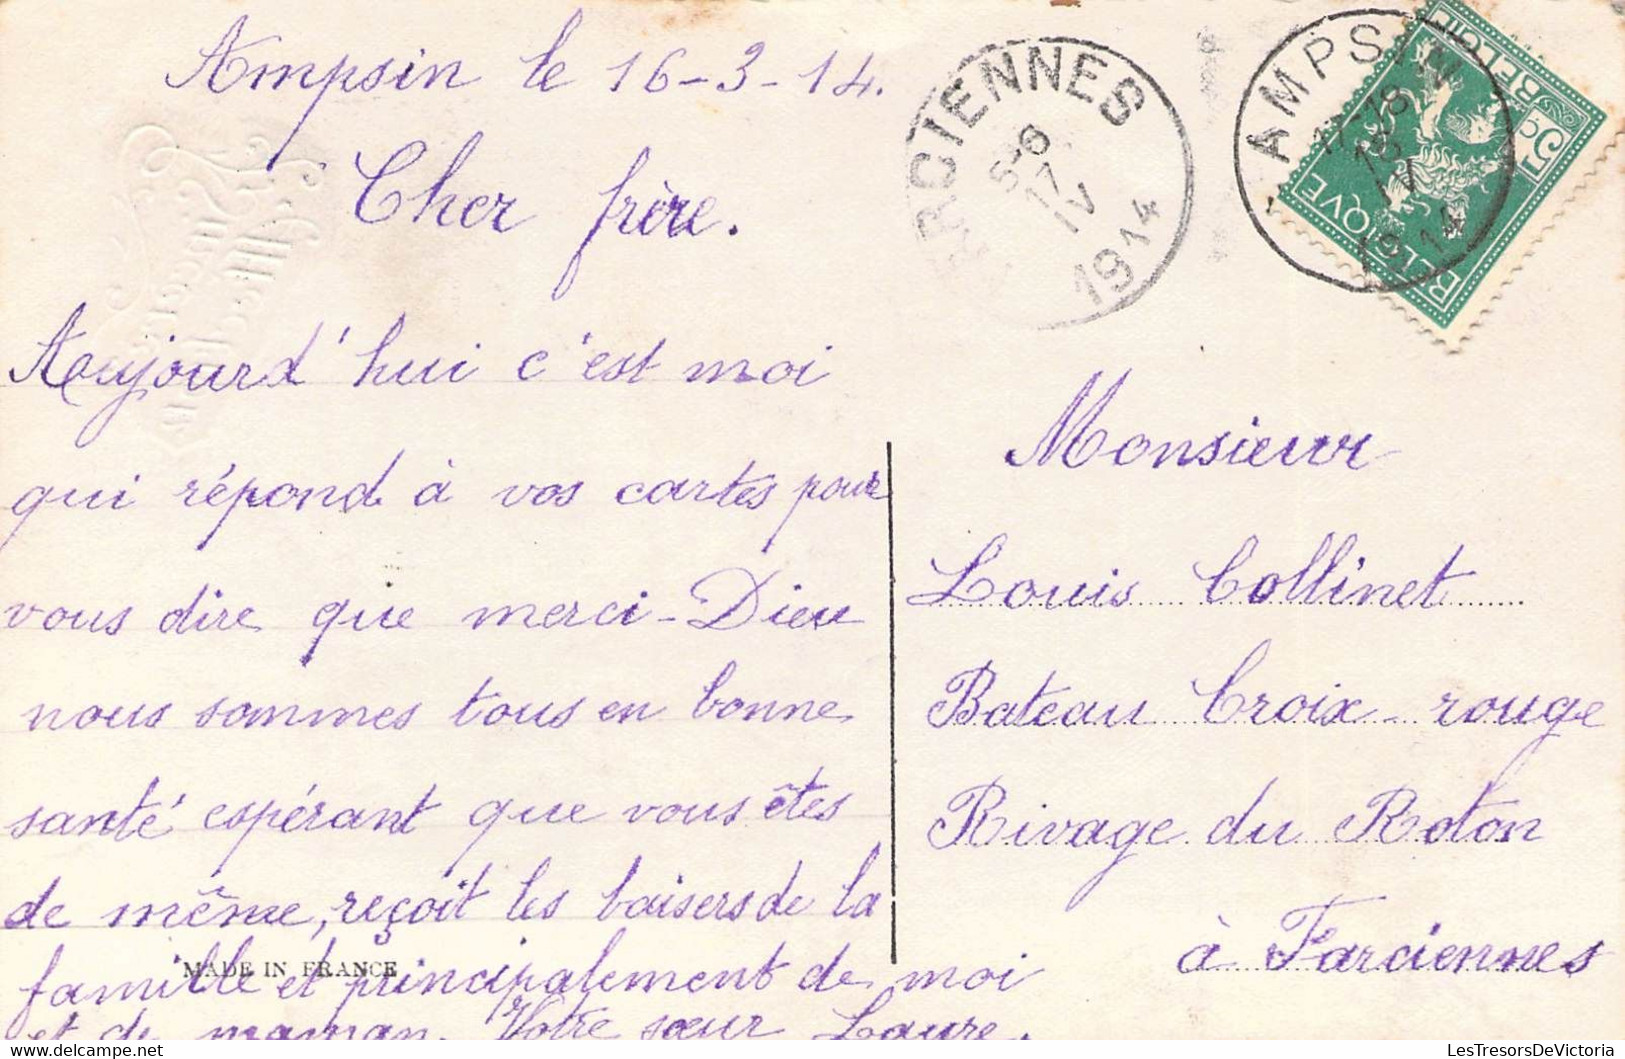 Ampsin le 16-3-14.
Cher frère.
Aujourd'hui c'est moi
qui répond à vos cartes pour
vous dire que merci-Dieu
nous sommes tous en bonne
santé espérant que vous êtes
de même, reçoit les baisers de la
famille et principalement de moi
et de maman. Votre sœur Laure.
MADE IN FRANCE
FARCIENNES
5-6
17
IV
1914
AMPSIN
17-18
IV
1914
BELGIË
5c
BELGIQVE
Monsieur
Louis Collinet
Bateau Croix-rouge
Rivage du Roton
à Farciennes
LesTresorsDeVictoria